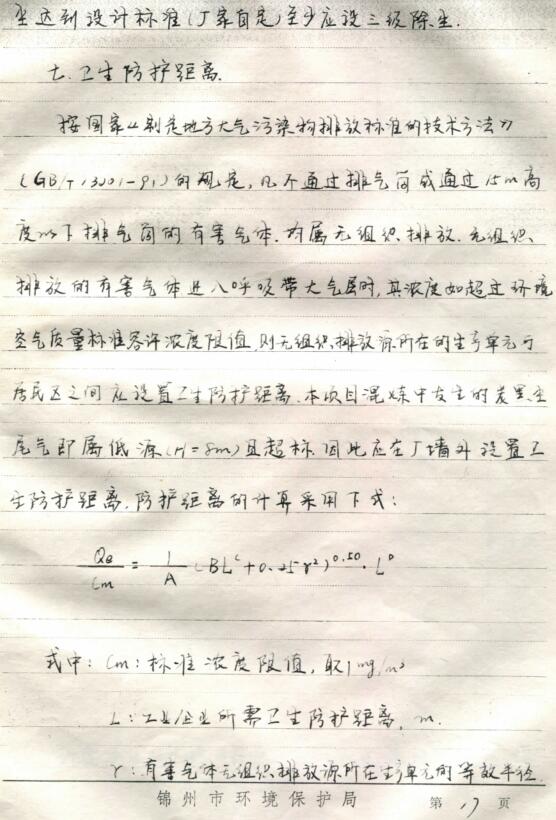 达到设计标准(厂家自定)至少应设三级除尘.
七.卫生防护距离.
按国家《制定地方大气污染物排放标准的技术方法》
(GB/T13201-91)的规定,凡不通过排气筒或通过15m高
度以下排气筒的有害气体.均属无组织排放.无组织
排放的有害气体进入呼吸带大气层时,其浓度如超过环境
空气质量标准容许浓度限值,则无组织排放源所在的生产单元与
居民区之间应设置卫生防护距离.本项目混炼中发生的炭黑尘
尾气即属低源(H=8m)且超标.因此应在厂墙外设置卫
生防护距离.防护距离的计算采用下式:
Qc/Cm = 1/A (BL^c+0.25γ²)^0.50·L^D
式中:Cm:标准浓度限值,取1mg/m³
L:工业企业所需卫生防护距离,m.
γ:有害气体无组织排放源所在生产单元的等效半径
锦州市环境保护局 第17页